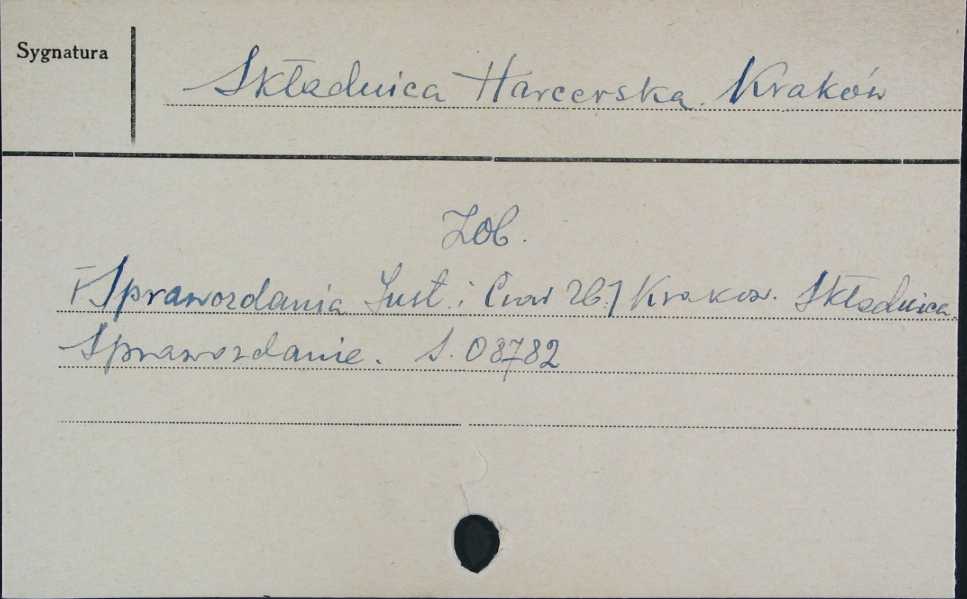 Sygnatura
Składnica Harcerska. Kraków
Zob.
Sprawozdania Inst. i Kraków. Składnica.
Sprawozdanie. S. 08782